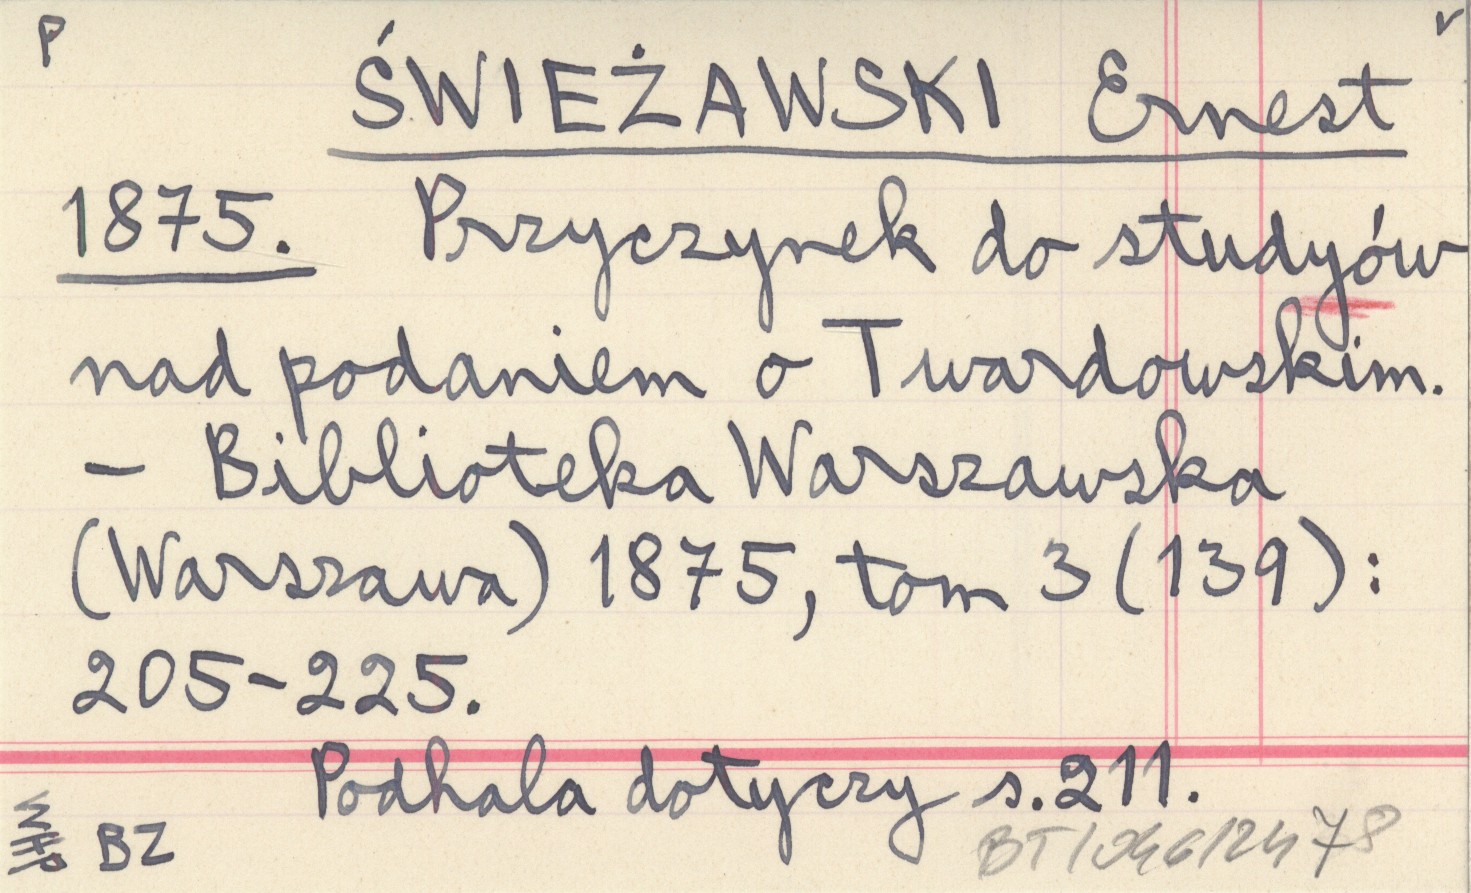 P
ŚWIEŻAWSKI Ernest
1875. Przyczynek do studyów
nad podaniem o Twardowskim.
– Biblioteka Warszawska
(Warszawa) 1875, tom 3 (139):
205-225.
Podhala dotyczy s.211.
BZ